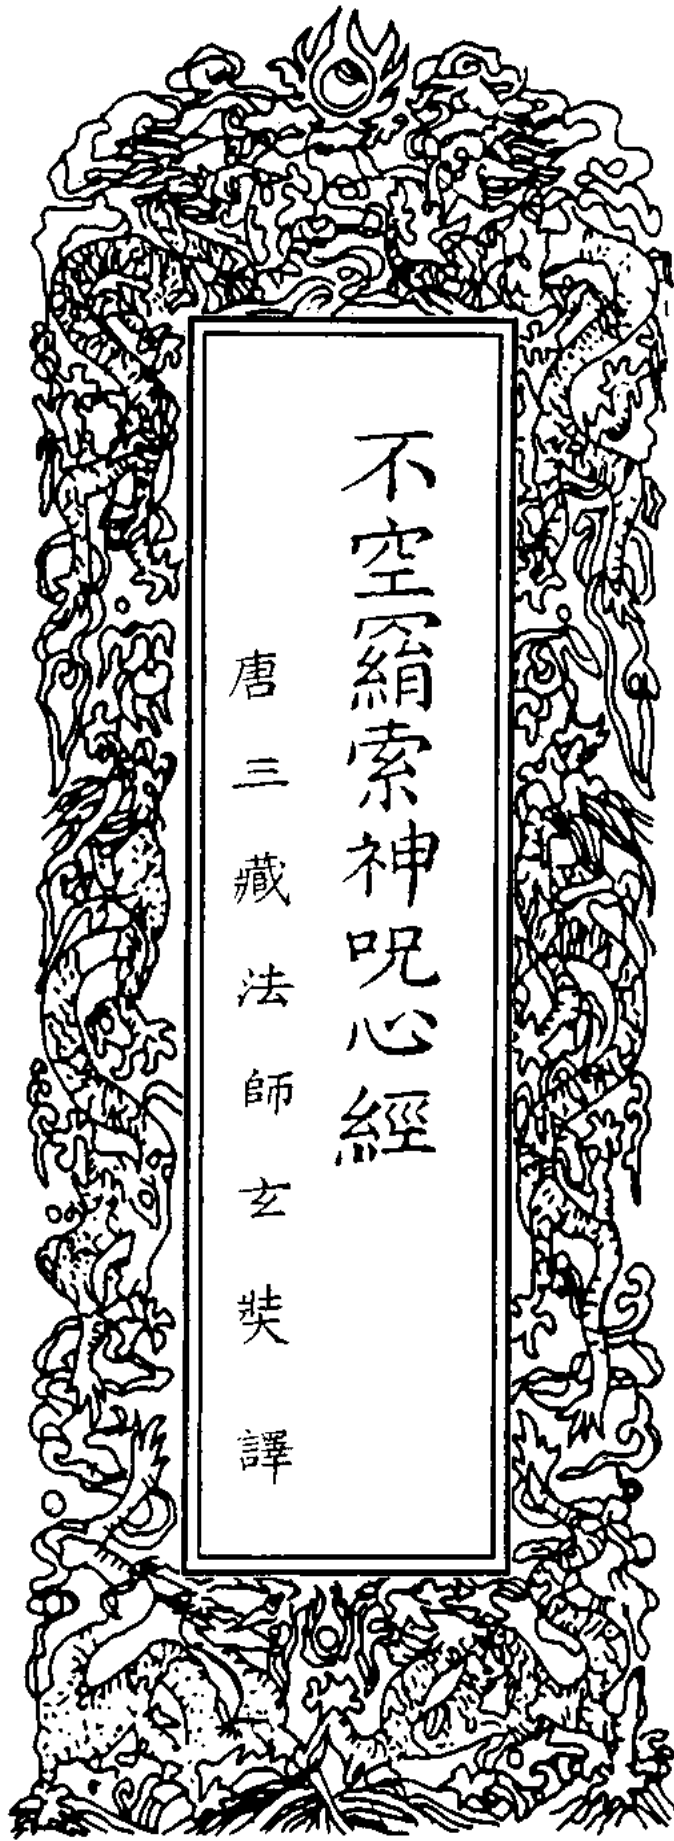 不空羂索神呪心經
唐三藏法師玄奘譯